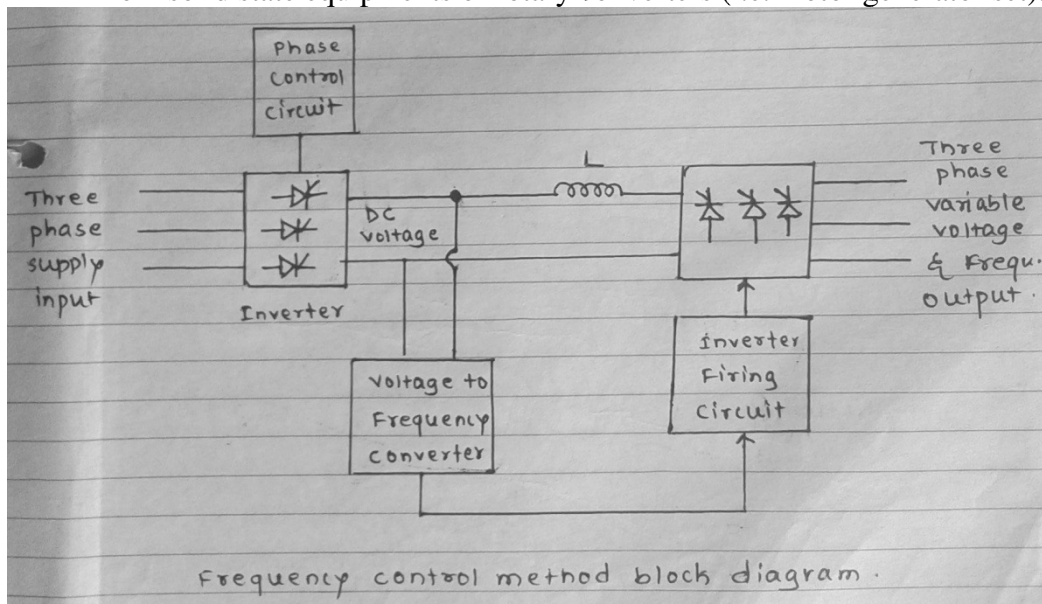 Phase
control
circuit
Three
phase
supply
input
Inverter
DC
voltage
L
Three
phase
variable
voltage
& Frequ.
output.
Voltage to
Frequency
converter
Inverter
Firing
Circuit
Frequency control method block diagram.